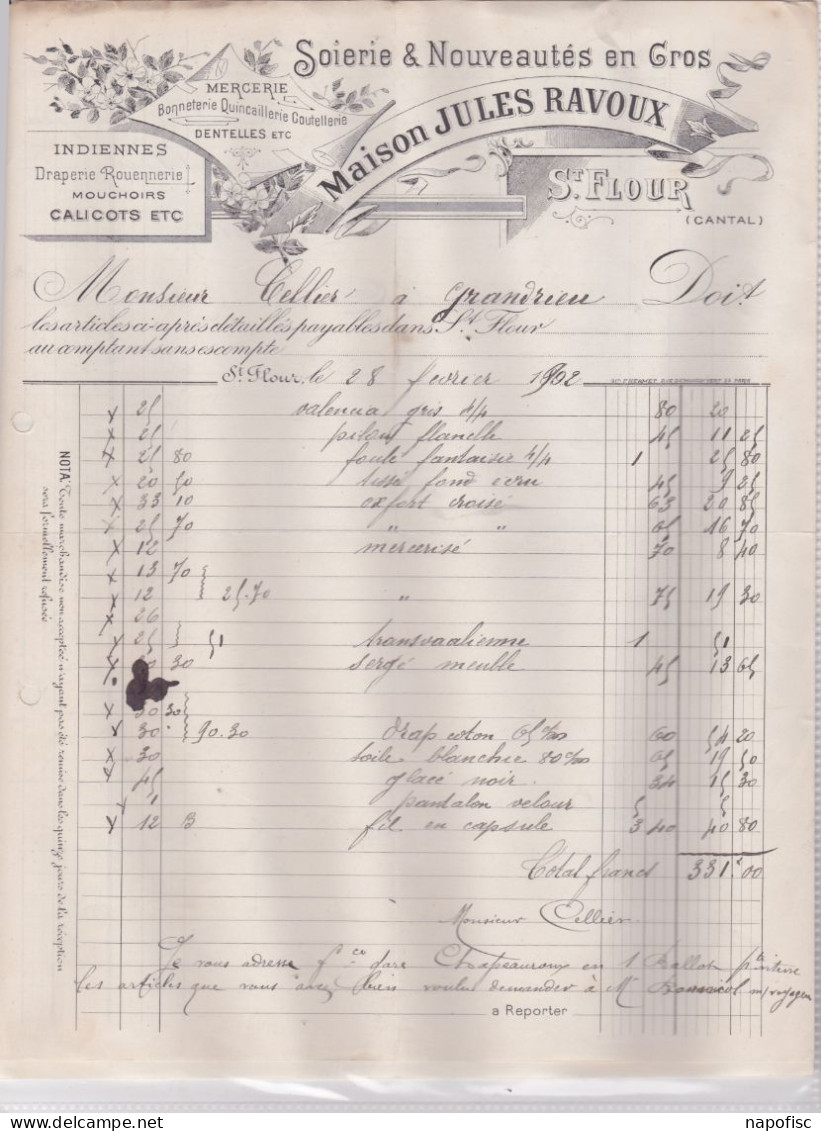 Soierie & Nouveautés en Gros
MERCERIE
Bonneterie Quincaillerie Coutellerie
DENTELLES ETC
Maison JULES RAVOUX
INDIENNES
Draperie Rouennerie
MOUCHOIRS
CALICOTS ETC
ST. FLOUR
(CANTAL)
Monsieur Cellier à Grandrieu Doit
les articles ci-après détaillés payables dans St Flour
au comptant sans escompte
St Flour, le 28 fevrier 1902
x 25 valencia gris 4/4 80 20
x 25 pilou flanelle 45 11 25
x 25 80 foulé fantaisie 4/4 1 25 80
x 20 50 tissu fond ecru 45 9 25
x 33 10 oxfort croisé 63 20 85
x 25 70 " " 65 16 70
x 12 mercerisé 70 8 40
x 13 70
x 12 25.70 " 75 19 30
x 26
x 25 51 transvaalienne 1 51
x 30 30 sergé meuble 45 13 65
x 30 30
x 30 90.30 drap coton 65 60 54 20
x 30 toile blanchie 80 65 19 50
x 45 glacé noir 34 15 30
1 pantalon velour 5 5
x 12 B fil en capsule 3 40 40 80
Total francs 331 00
Monsieur Cellier
Je vous adresse fco gare Chapeauroux en 1 Ballot
Les articles que vous avez bien voulu demander à Mr
a Reporter
NOTA. Toute marchandise non acceptée n'ayant pas été remise dans les quinze jours de la réception
sera formellement refusée
napofisc